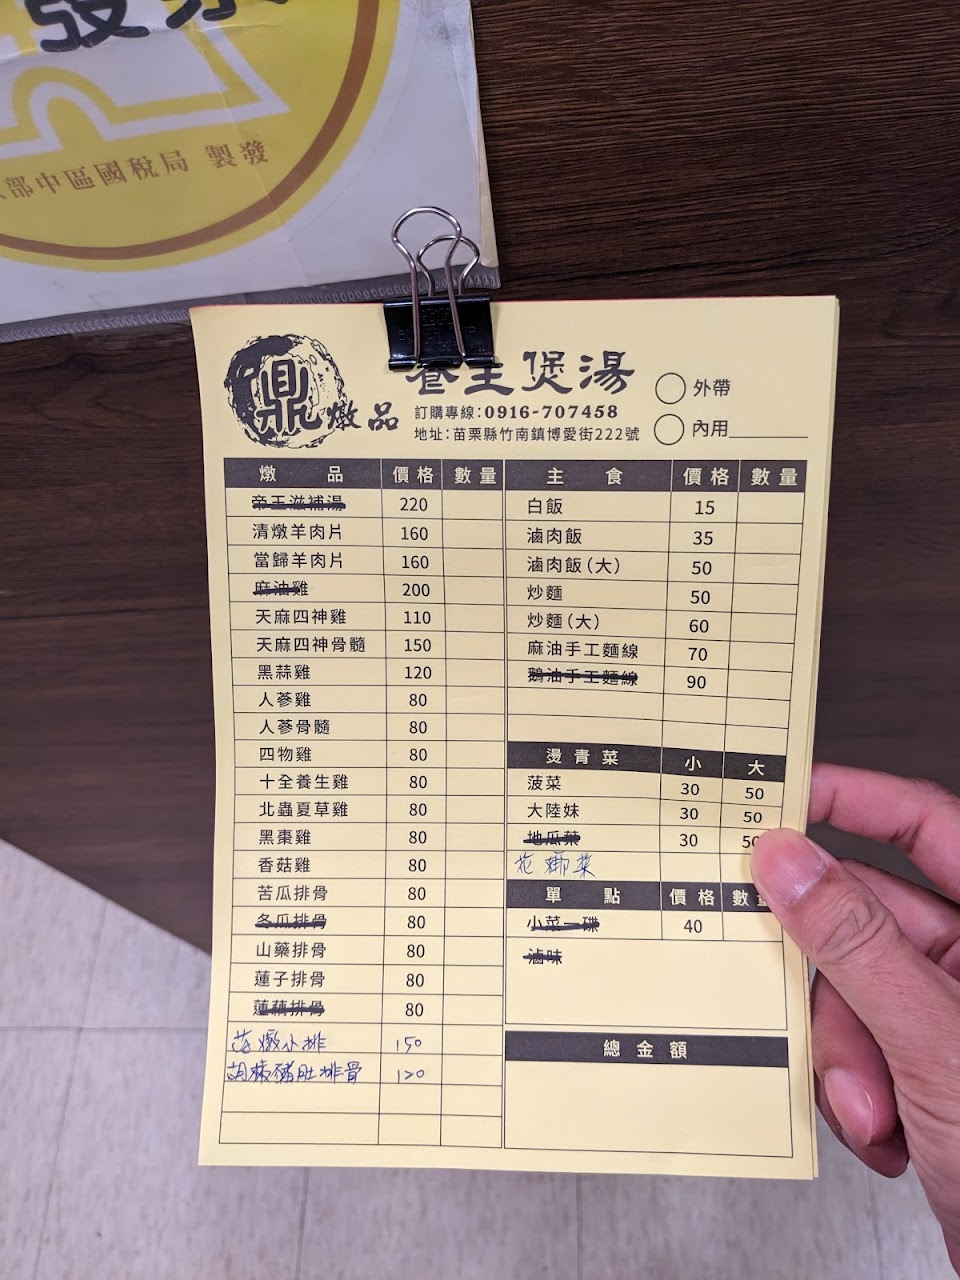 部中區國稅局 製發
鼎
燉品
養生煲湯
訂購專線:0916-707458
地址:苗栗縣竹南鎮博愛街222號
外帶
內用
燉 品 價格 數量
帝王滋補湯 220
清燉羊肉片 160
當歸羊肉片 160
麻油雞 200
天麻四神雞 110
天麻四神骨髓 150
黑蒜雞 120
人蔘雞 80
人蔘骨髓 80
四物雞 80
十全養生雞 80
北蟲夏草雞 80
黑棗雞 80
香菇雞 80
苦瓜排骨 80
冬瓜排骨 80
山藥排骨 80
蓮子排骨 80
蓮藕排骨 80
燉小排 150
胡椒豬肚排骨 120
主 食 價格 數量
白飯 15
滷肉飯 35
滷肉飯(大) 50
炒麵 50
炒麵(大) 60
麻油手工麵線 70
鵝油手工麵線 90
燙青菜 小 大
菠菜 30 50
大陸妹 30 50
地瓜葉 30 50
花椰菜
單 點 價格 數量
小菜一碟 40
滷味
總金額